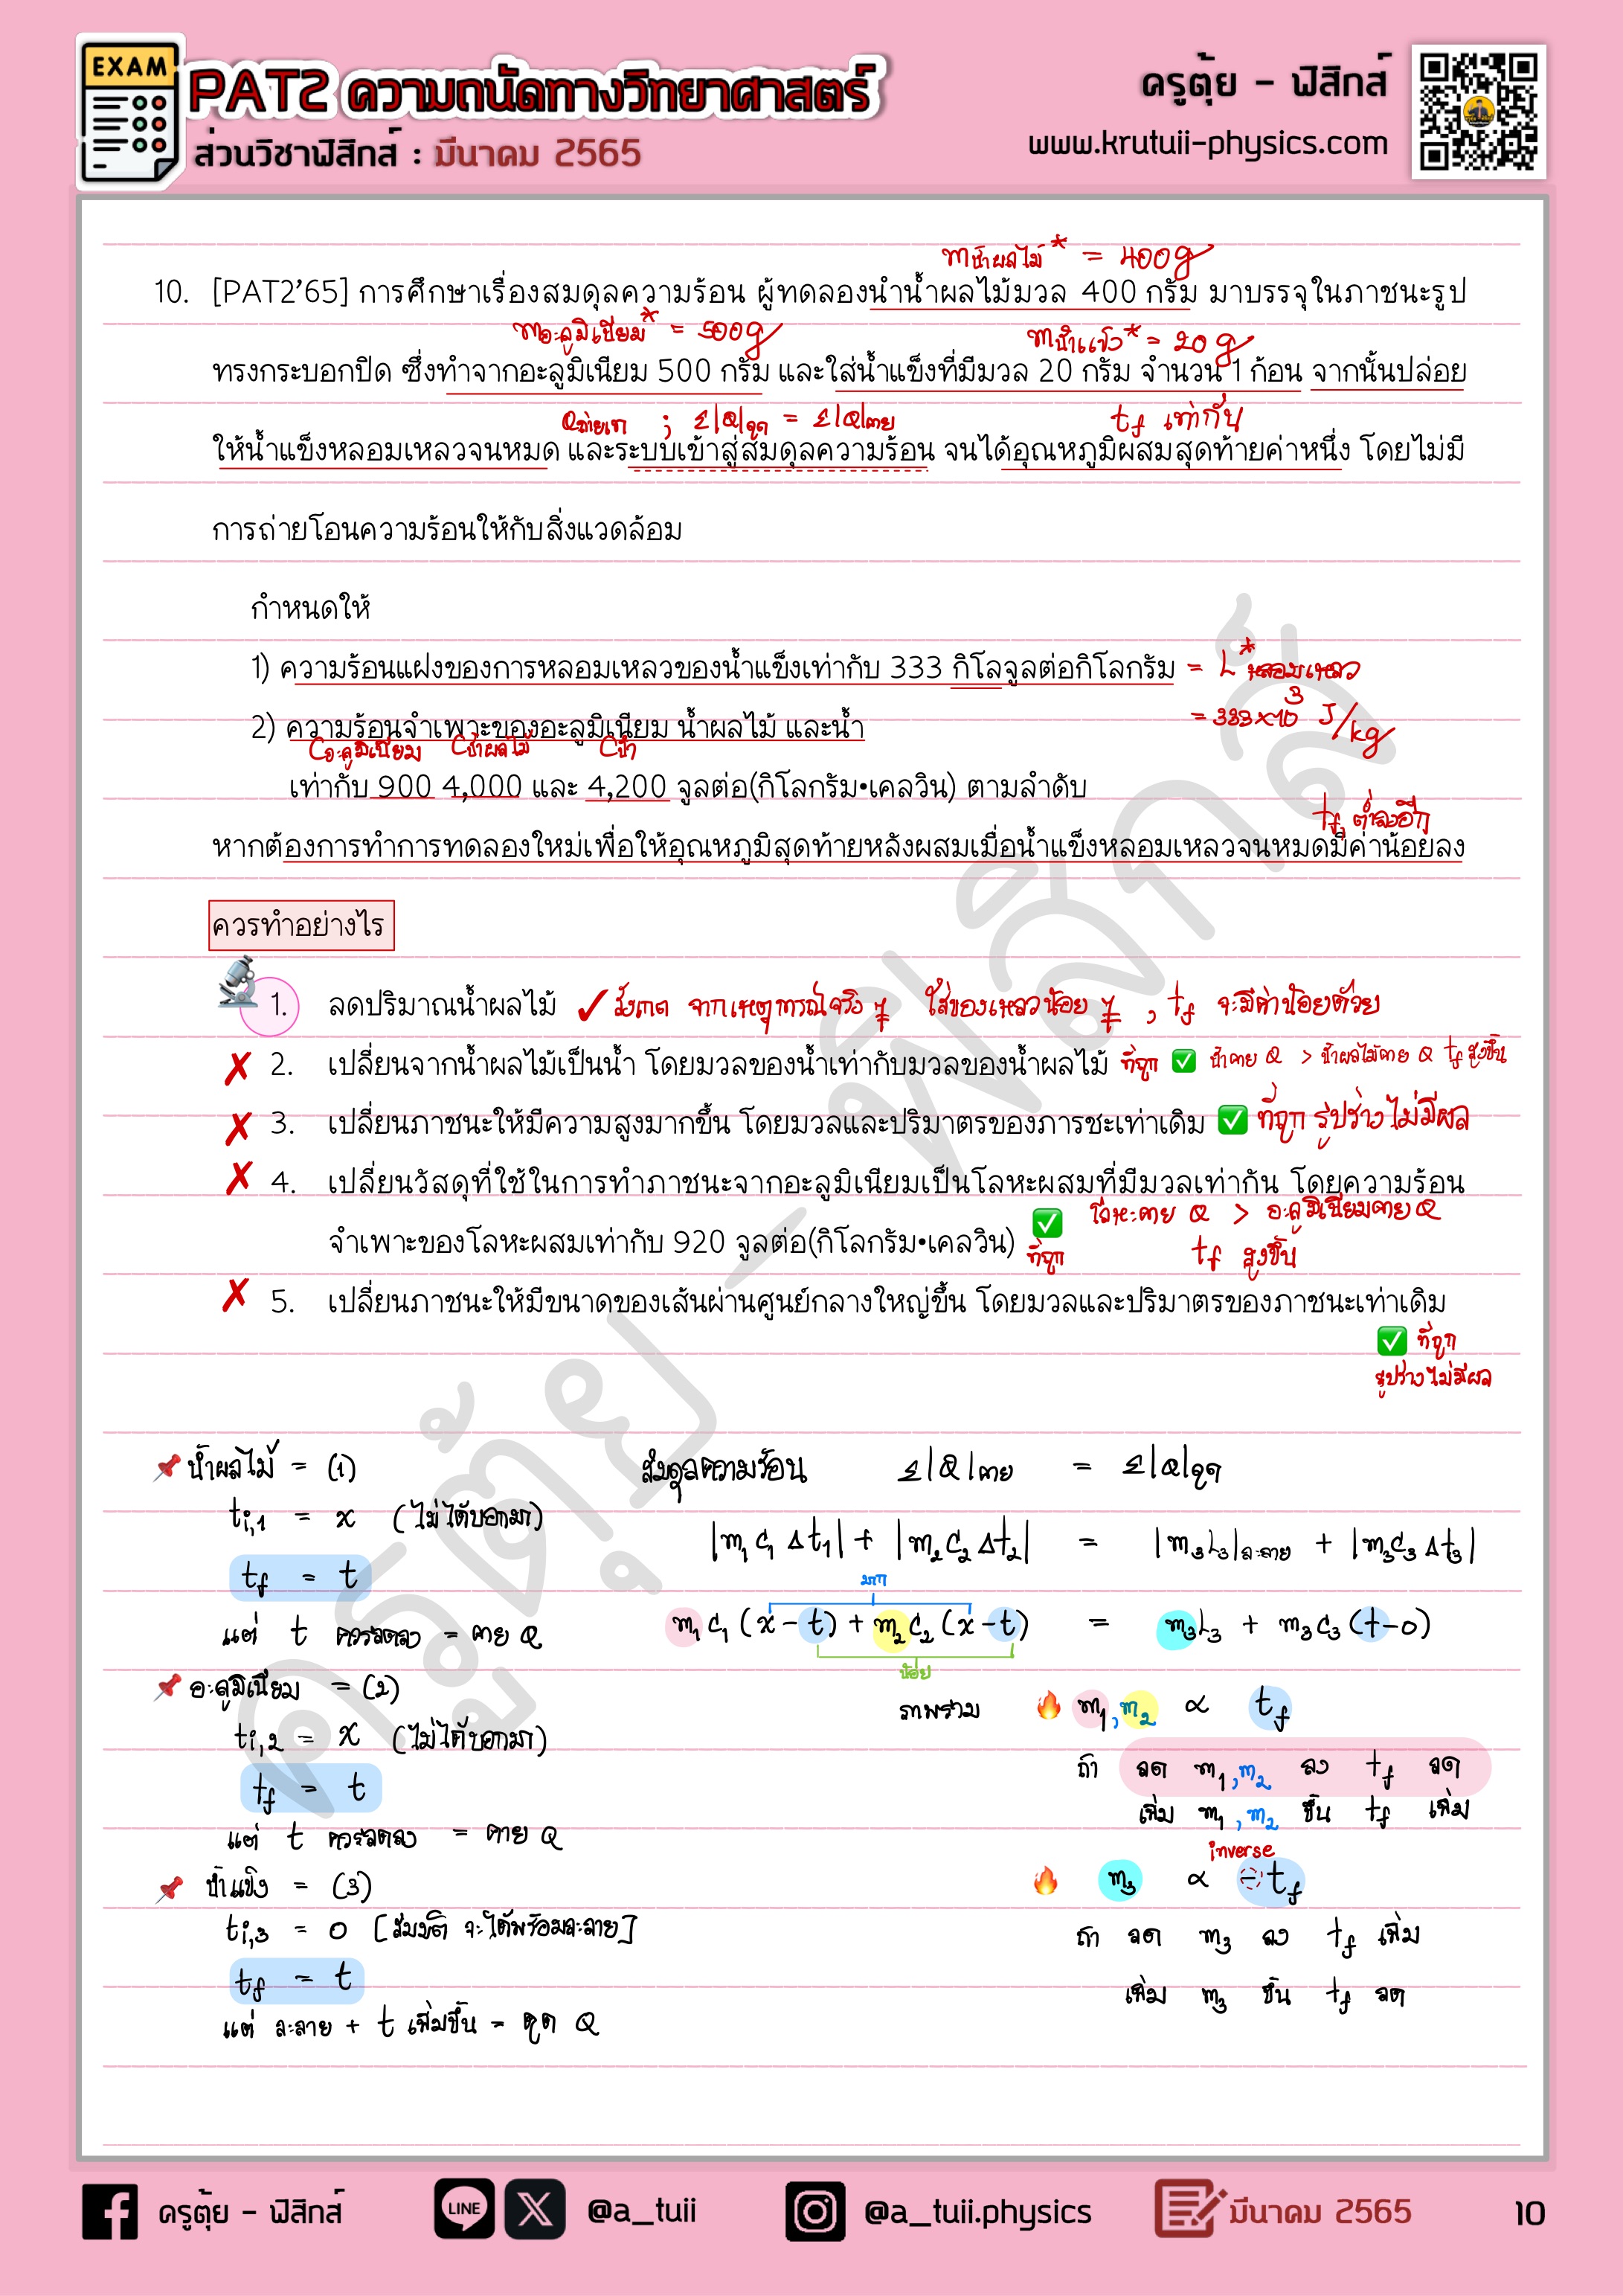 EXAM
PAT2 ความถนัดทางวิทยาศาสตร์
ส่วนวิชาฟิสิกส์ : มีนาคม 2565
ครูตุ้ย - ฟิสิกส์
www.krutuii-physics.com
m น้ำผลไม้* = 400g
10. [PAT2'65] การศึกษาเรื่องสมดุลความร้อน ผู้ทดลองนำน้ำผลไม้มวล 400 กรัม มาบรรจุในภาชนะรูป
m อะลูมิเนียม* = 500g m น้ำแข็ง* = 20g
ทรงกระบอกปิด ซึ่งทำจากอะลูมิเนียม 500 กรัม และใส่น้ำแข็งที่มีมวล 20 กรัม จำนวน 1 ก้อน จากนั้นปล่อย
Qถ่ายเท ; Σ|Q|ดูด = Σ|Q|คาย tf เท่ากัน
ให้น้ำแข็งหลอมเหลวจนหมด และระบบเข้าสู่สมดุลความร้อน จนได้อุณหภูมิผสมสุดท้ายค่าหนึ่ง โดยไม่มี
การถ่ายโอนความร้อนให้กับสิ่งแวดล้อม
กำหนดให้
1) ความร้อนแฝงของการหลอมเหลวของน้ำแข็งเท่ากับ 333 กิโลจูลต่อกิโลกรัม = L* หลอมเหลว
= 333×10³ J/kg
2) ความร้อนจำเพาะของอะลูมิเนียม น้ำผลไม้ และน้ำ
Cอะลูมิเนียม Cน้ำผลไม้ Cน้ำ
เท่ากับ 900 4,000 และ 4,200 จูลต่อ(กิโลกรัม•เคลวิน) ตามลำดับ
tf ต่ำลงอีก
หากต้องการทำการทดลองใหม่เพื่อให้อุณหภูมิสุดท้ายหลังผสมเมื่อน้ำแข็งหลอมเหลวจนหมดมีค่าน้อยลง
ควรทำอย่างไร
1. ลดปริมาณน้ำผลไม้ ✓ สังเกต จากเหตุการณ์จริง ๆ ใส่ของเหลวน้อย ๆ , tf จะมีค่าน้อยด้วย
✗ 2. เปลี่ยนจากน้ำผลไม้เป็นน้ำ โดยมวลของน้ำเท่ากับมวลของน้ำผลไม้ ที่ถูก ✅ น้ำคาย Q > น้ำผลไม้คาย Q tf สูงขึ้น
✗ 3. เปลี่ยนภาชนะให้มีความสูงมากขึ้น โดยมวลและปริมาตรของภารชะเท่าเดิม ✅ ที่ถูก รูปร่างไม่มีผล
✗ 4. เปลี่ยนวัสดุที่ใช้ในการทำภาชนะจากอะลูมิเนียมเป็นโลหะผสมที่มีมวลเท่ากัน โดยความร้อน
จำเพาะของโลหะผสมเท่ากับ 920 จูลต่อ(กิโลกรัม•เคลวิน) ✅ ที่ถูก โลหะคาย Q > อะลูมิเนียมคาย Q
tf สูงขึ้น
✗ 5. เปลี่ยนภาชนะให้มีขนาดของเส้นผ่านศูนย์กลางใหญ่ขึ้น โดยมวลและปริมาตรของภาชนะเท่าเดิม
✅ ที่ถูก
รูปร่างไม่มีผล
📌 น้ำผลไม้ = (1)
ti,1 = x (ไม่ได้บอกมา)
tf = t
แต่ t ควรลดลง = คาย Q
📌 อะลูมิเนียม = (2)
ti,2 = x (ไม่ได้บอกมา)
tf = t
แต่ t ควรลดลง = คาย Q
📌 น้ำแข็ง = (3)
ti,3 = 0 [สมมติ จะได้พร้อมละลาย]
tf = t
แต่ ละลาย + t เพิ่มขึ้น = ดูด Q
สมดุลความร้อน Σ|Q|คาย = Σ|Q|ดูด
|m₁c₁Δt₁| + |m₂c₂Δt₂| = |m₃L₃|ละลาย + |m₃c₃Δt₃|
มาก
m₁c₁(x-t) + m₂c₂(x-t) = m₃L₃ + m₃c₃(t-0)
น้อย
ภาพรวม 🔥 m₁,m₂ ∝ tf
ถ้า ลด m₁,m₂ ลง tf ลด
เพิ่ม m₁,m₂ ขึ้น tf เพิ่ม
inverse
🔥 m₃ ∝ -tf
ถ้า ลด m₃ ลง tf เพิ่ม
เพิ่ม m₃ ขึ้น tf ลด
ครูตุ้ย - ฟิสิกส์
ครูตุ้ย - ฟิสิกส์
LINE
@a_tuii
@a_tuii.physics
มีนาคม 2565
10